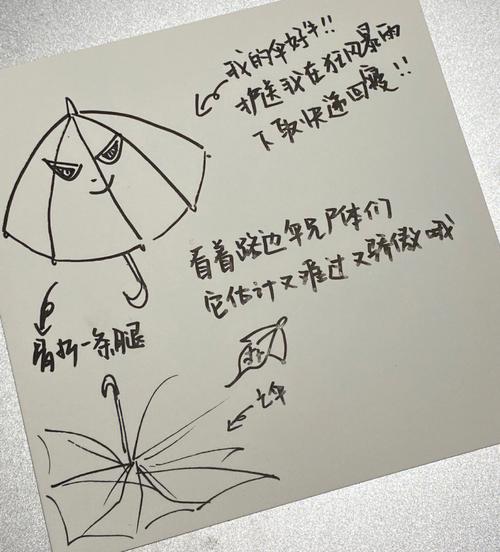 我的伞好牛!!
护送我在狂风暴雨
下取快递回寝!!
看着路边伞兄尸体们
它估计又难过又骄傲哦
骨折一条腿
亡伞